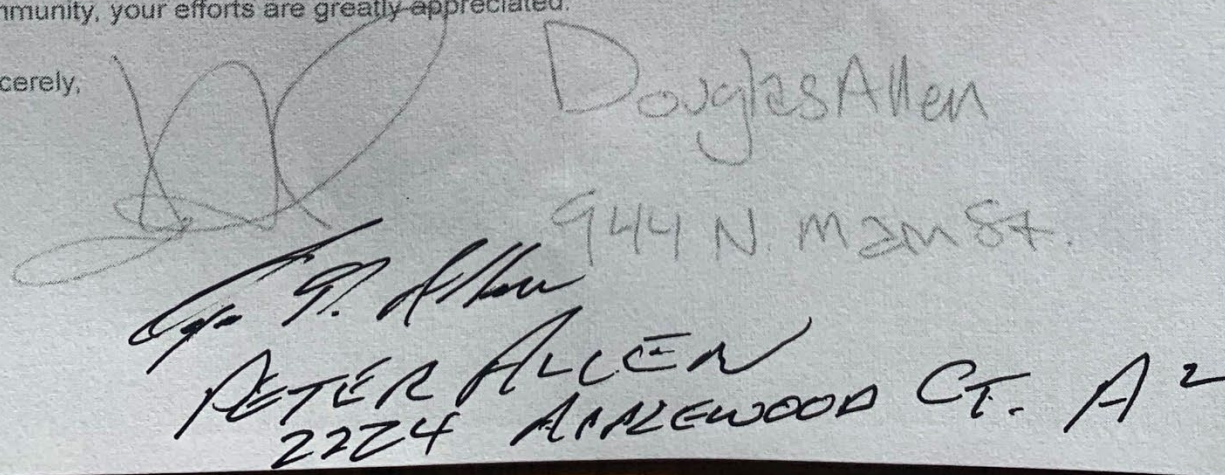 mmunity, your efforts are greatly appreciated.
cerely,
Douglas Allen
944 N. Main St.
Allen
PETER ALLEN
2224 APPLEWOOD CT. A2